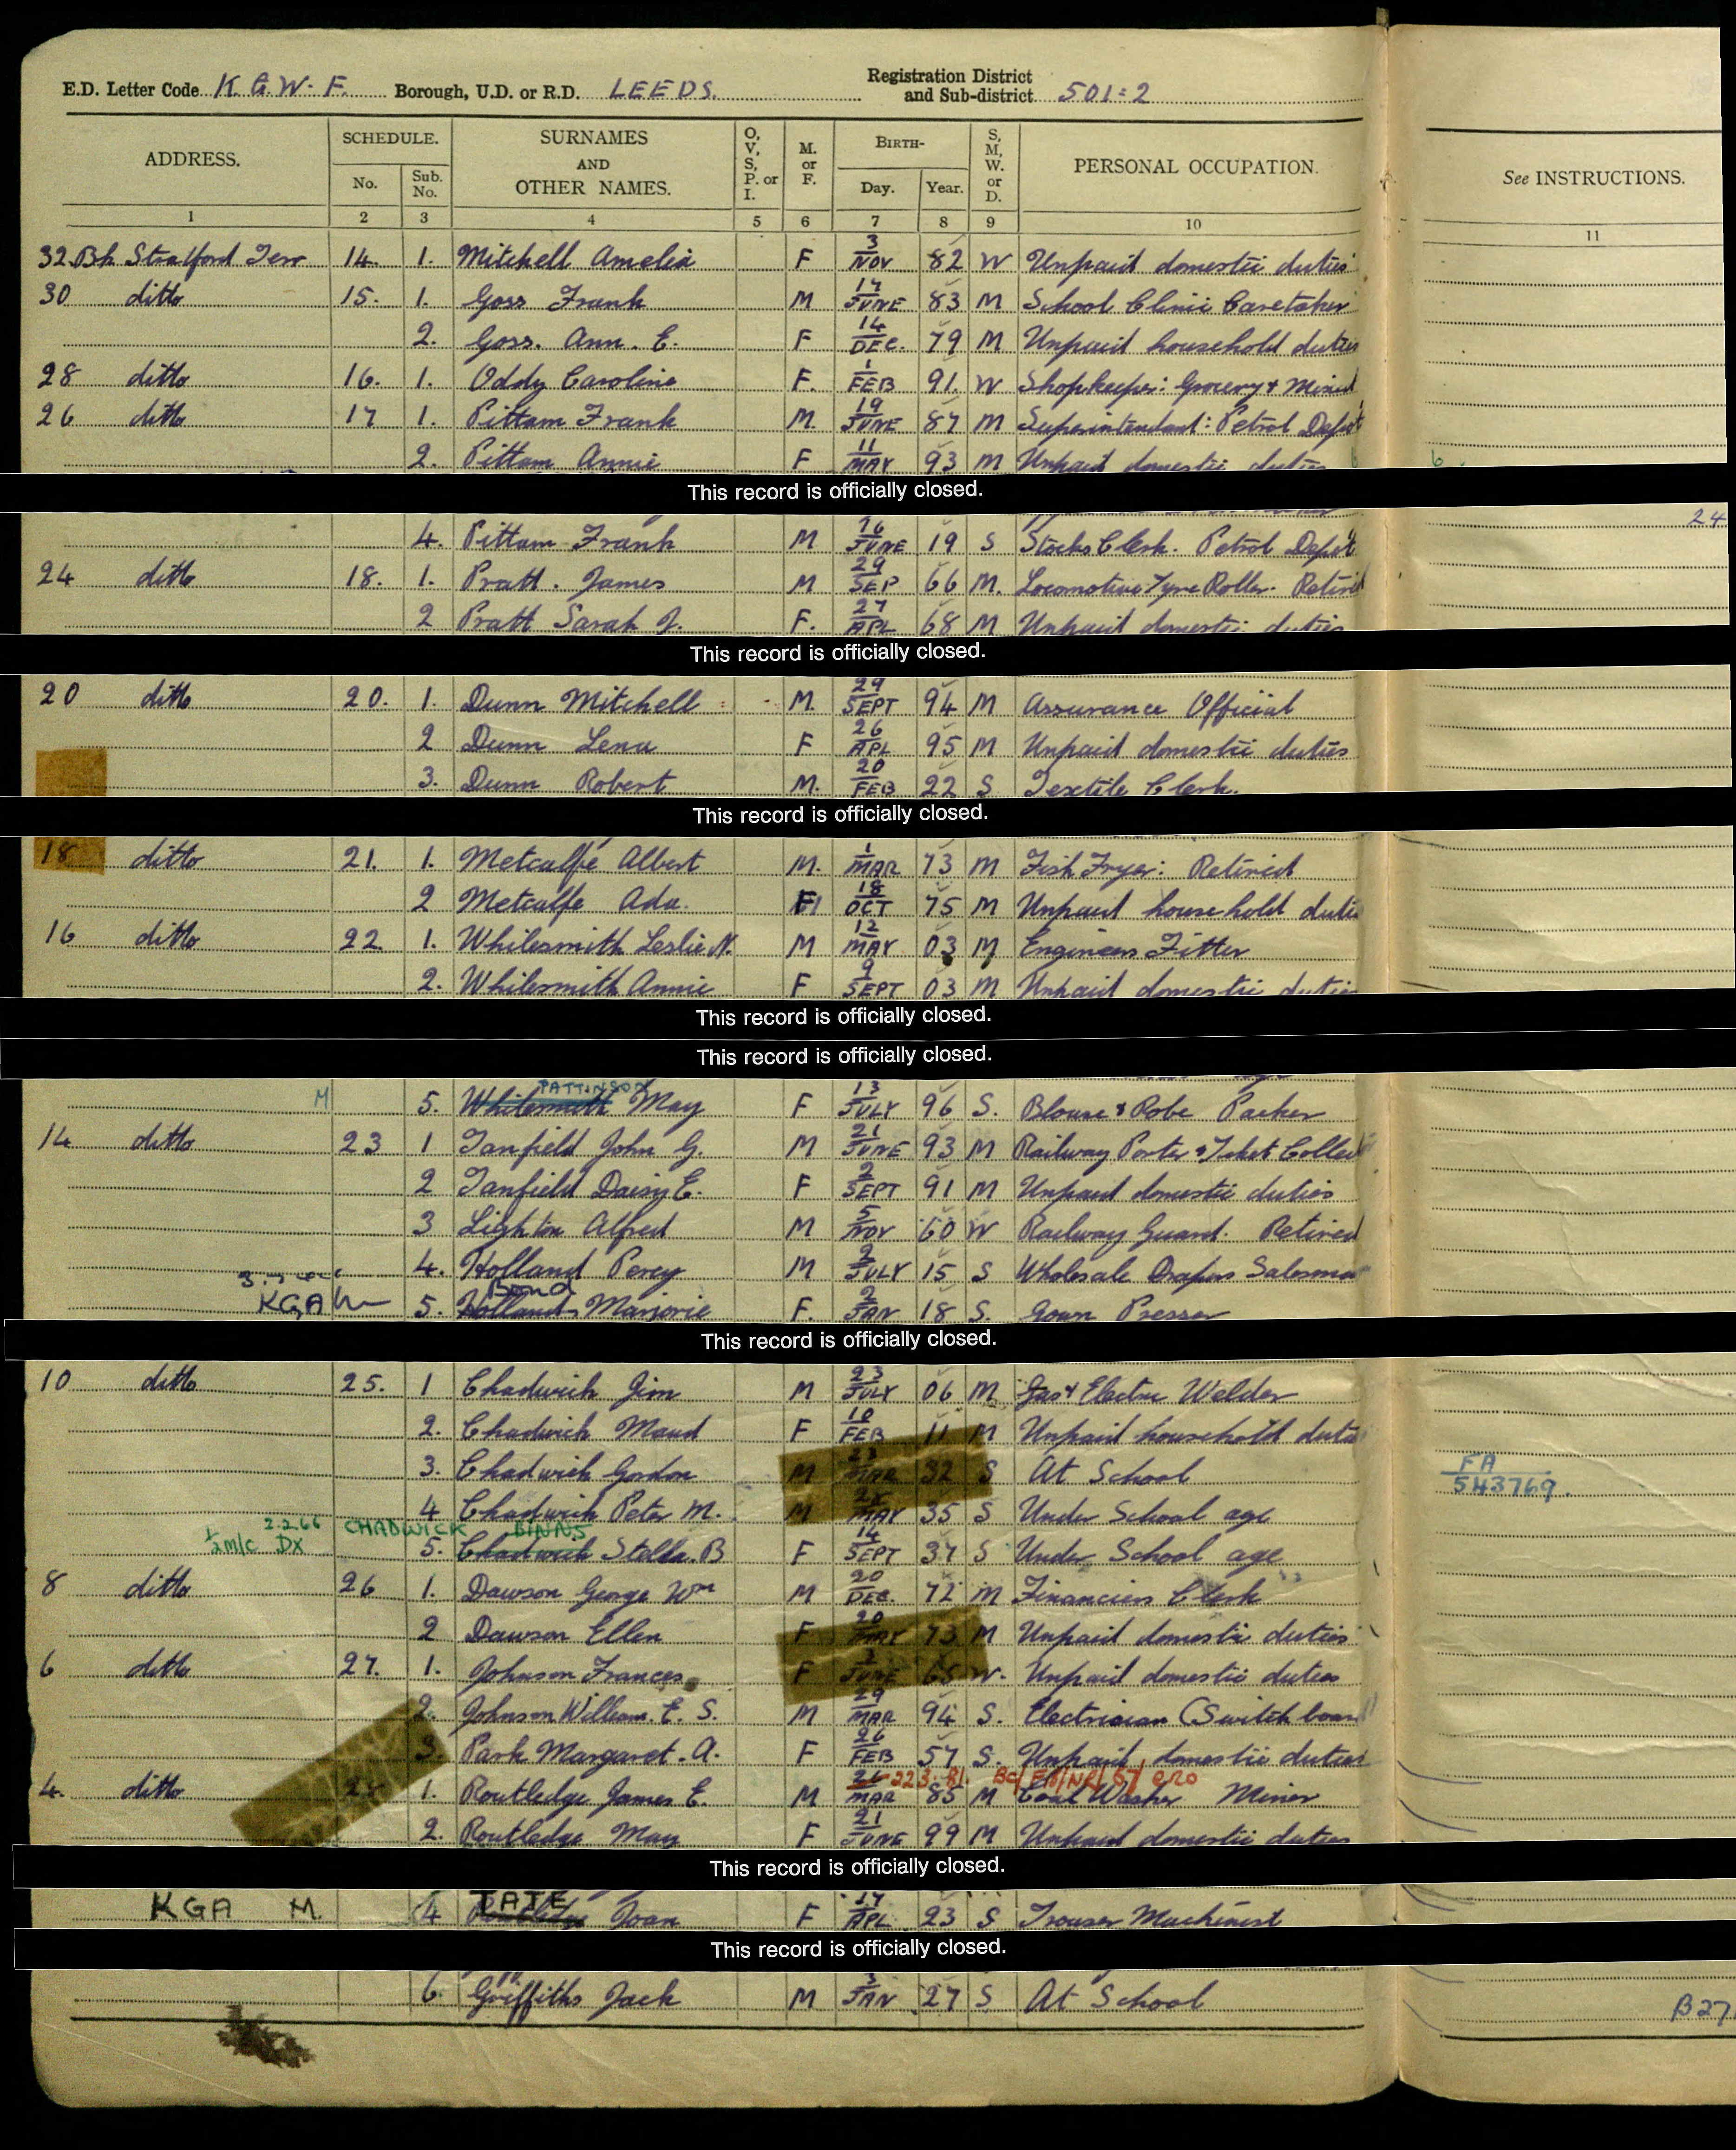 E.D. Letter Code K.G.W.F. Borough, U.D. or R.D. LEEDS. Registration District and Sub-district 501=2
ADDRESS. SCHEDULE. No. Sub. No. SURNAMES AND OTHER NAMES. O, V, S, P. or I. M. or F. BIRTH- Day. Year. S, M, W. or D. PERSONAL OCCUPATION. See INSTRUCTIONS.
1 2 3 4 5 6 7 8 9 10 11
32 Bk Stratford Terr 14. 1. Mitchell Amelia F 3 NOV 82 W Unpaid domestic duties
30 ditto 15. 1. Goss Frank M 17 JUNE 83 M School Clinic Caretaker
2. Goss. Ann. E. F 14 DEC. 79 M Unpaid household duties
28 ditto 16. 1. Oddy Caroline F. 1 FEB 91. W Shopkeeper: Grocery & Mixed
26 ditto 17 1. Pittam Frank M. 19 JUNE 87 M Superintendant: Petrol Depot
2. Pittam Annie F 11 MAY 93 M Unpaid domestic duties 6.
This record is officially closed.
4. Pittam Frank M 16 JUNE 19 S Stocks Clerk. Petrol Depot 24
24 ditto 18. 1. Pratt. James M 29 SEP 66 M. Locomotive Tyre Roller. Retired
2 Pratt Sarah J. F. 27 APL 68 M Unpaid domestic duties
This record is officially closed.
20 ditto 20. 1. Dunn Mitchell M. 29 SEPT 94 M Assurance Official
2 Dunn Lena F 26 APL 95 M Unpaid domestic duties
3. Dunn Robert M. 20 FEB 22 S Textile Clerk.
This record is officially closed.
18 ditto 21. 1. Metcalfe Albert M. 1 MAR 73 M Fish Fryer: Retired
2 Metcalfe Ada. F 18 OCT 75 M Unpaid household duties
16 ditto 22 1. Whitesmith Leslie N. M 12 MAY 03 M Engineers Fitter
2. Whitesmith Annie F 9 SEPT 03 M Unpaid domestic duties
This record is officially closed.
This record is officially closed.
PATTINSON
M 5. Whitesmith May F 13 JULY 96 S. Blouse & Robe Packer
14 ditto 23 1 Tanfield John G. M 21 JUNE 93 M Railway Porter & Ticket Collec
2 Tanfield Daisy E. F 2 SEPT 91 M Unpaid domestic duties
3 Lighton Alfred M 5 NOV 60 W Railway Guard. Retired
4. Holland Percy M 2 JULY 15 S Wholesale Drapers Salesman
Bond
KGA 5. Holland Marjorie F. 2 JAN 18 S. Gown Presser
This record is officially closed.
10 ditto 25. 1 Chadwick Jim M 23 JULY 06 M Gas & Electric Welder
2. Chadwick Maud F 10 FEB 11 M Unpaid household duties
3. Chadwick Gordon M 23 MAR 32 S At School FA 543769.
4 Chadwick Peter M. M MAY 35 S Under School age
2.2.66 CHADWICK BINNS
1/2 M/C DX 5. Chadwick Stella. B F 14 SEPT 37 S Under School age
8 ditto 26 1. Dawson George Wm M 20 DEC. 72 M Financiers Clerk
2 Dawson Ellen F 20 MAY 73 M Unpaid domestic duties
6 ditto 27. 1. Johnson Frances F JUNE 65 W. Unpaid domestic duties
2. Johnson William. E. S. M 29 MAR 94 S. Electrician (Switch board
3. Park Margaret. A. F 26 FEB 57 S. Unpaid domestic duties
22.3.81.
4. ditto 28 1. Routledge James E. M MAR 85 M Coal Washer Miner
2. Routledge May F 21 JUNE 99 M Unpaid domestic duties
This record is officially closed.
TATE
KGA M. 4 Routledge Joan F 17 APL 23 S Trouser Machinist
This record is officially closed.
6. Griffiths Jack M 3 JAN 27 S At School
B27